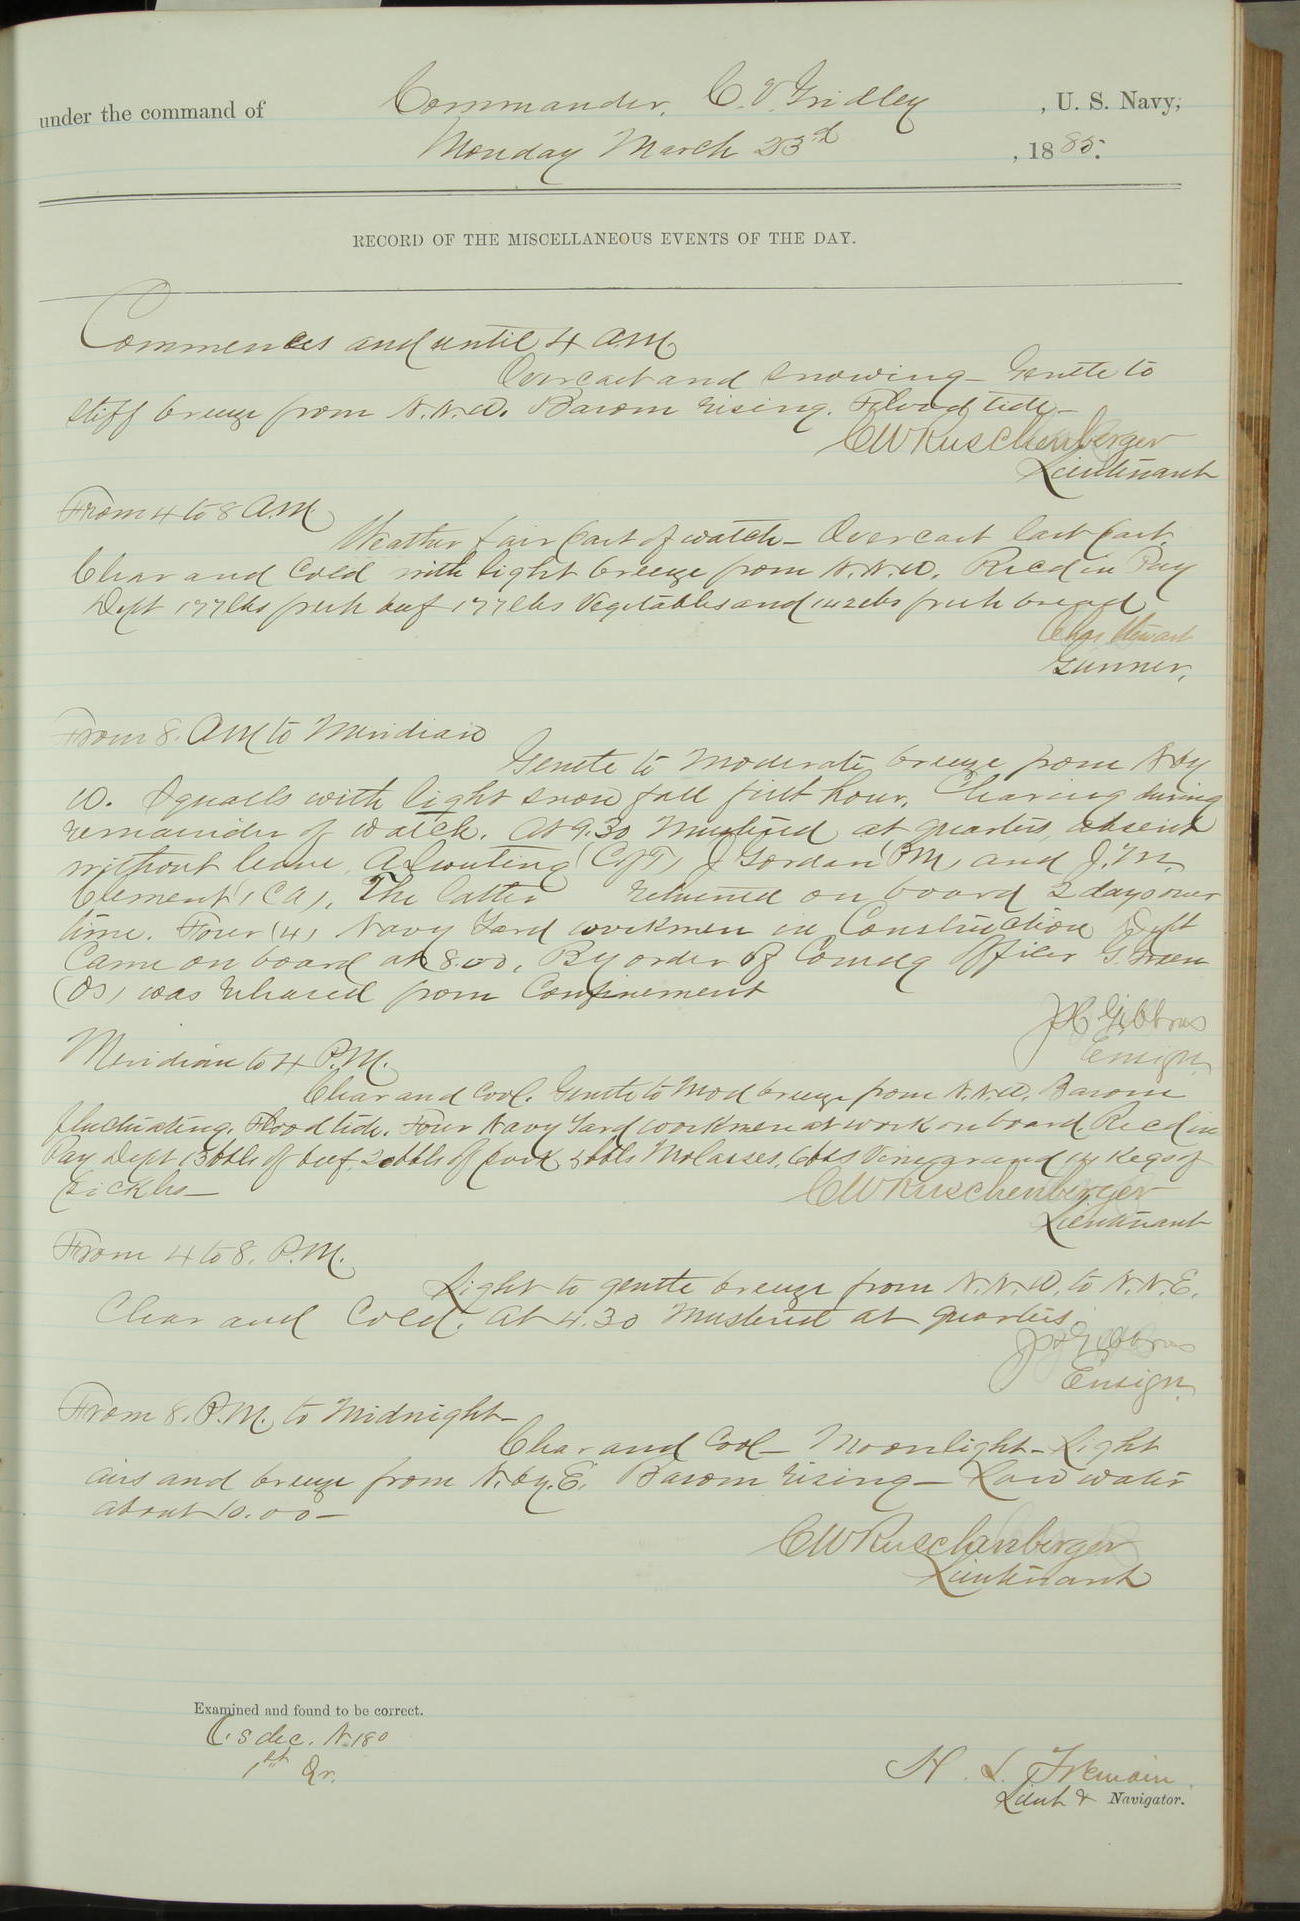 under the command of Commander, C. V. Gridley , U. S. Navy,
Monday March 23rd , 1885.
RECORD OF THE MISCELLANEOUS EVENTS OF THE DAY.
Commences and until 4 A.M.
Overcast and snowing - Gentle to
stiff breeze from N.N.W. Barom rising. Flood tide -
C W Ruschenberger
Lieutenant
From 4 to 8 A.M.
Weather fair part of watch - Overcast last part.
Clear and Cold with light breeze from N.N.W. Recd in Pay
Dept 177 lbs fresh beef 177 lbs Vegetables and 142 lbs fresh bread
Chas Stewart
Gunner,
From 8. A.M. to Meridian
Gentle to Moderate breeze from N by
W. Squalls with light snow fall first hour, Clearing during
remainder of watch. At 9.30 Mustered at quarters, absent
without leave, (CofT), J Gordon (PM) and J. M.
Clement (CA), The latter returned on board 2 days over
time. Four (4) Navy Yard workmen in Construction Dept
Came on board at 8.00, By order of Comdg Officer G. Green
(OS) was released from Confinement
J H Gibbons
Ensign
Meridian to 4 P.M.
Clear and Cool. Gentle to Mod breeze from N.N.W. Barom
fluctuating. Flood tide. Four Navy Yard workmen at work on board. Recd in
Pay Dept 15 bbls of beef 20 bbls of pork 5 bbls Molasses, 6 bbls Vinegar and 14 Kegs of
pickles -
C W Ruschenberger
Lieutenant
From 4 to 8. P.M.
Light to gentle breeze from N.N.W. to N.N.E.
Clear and Cold. At 4.30 Mustered at quarters.
J H Gibbons
Ensign
From 8. P.M. to Midnight -
Clear and Cool - Moonlight - Light
airs and breeze from N. by. E. Barom rising - Low water
about 10.00 -
C W Ruschenberger
Lieutenant
Examined and found to be correct.
8 dec. N 180
1st Qr.
H. L. Tremain
Lieut & Navigator.